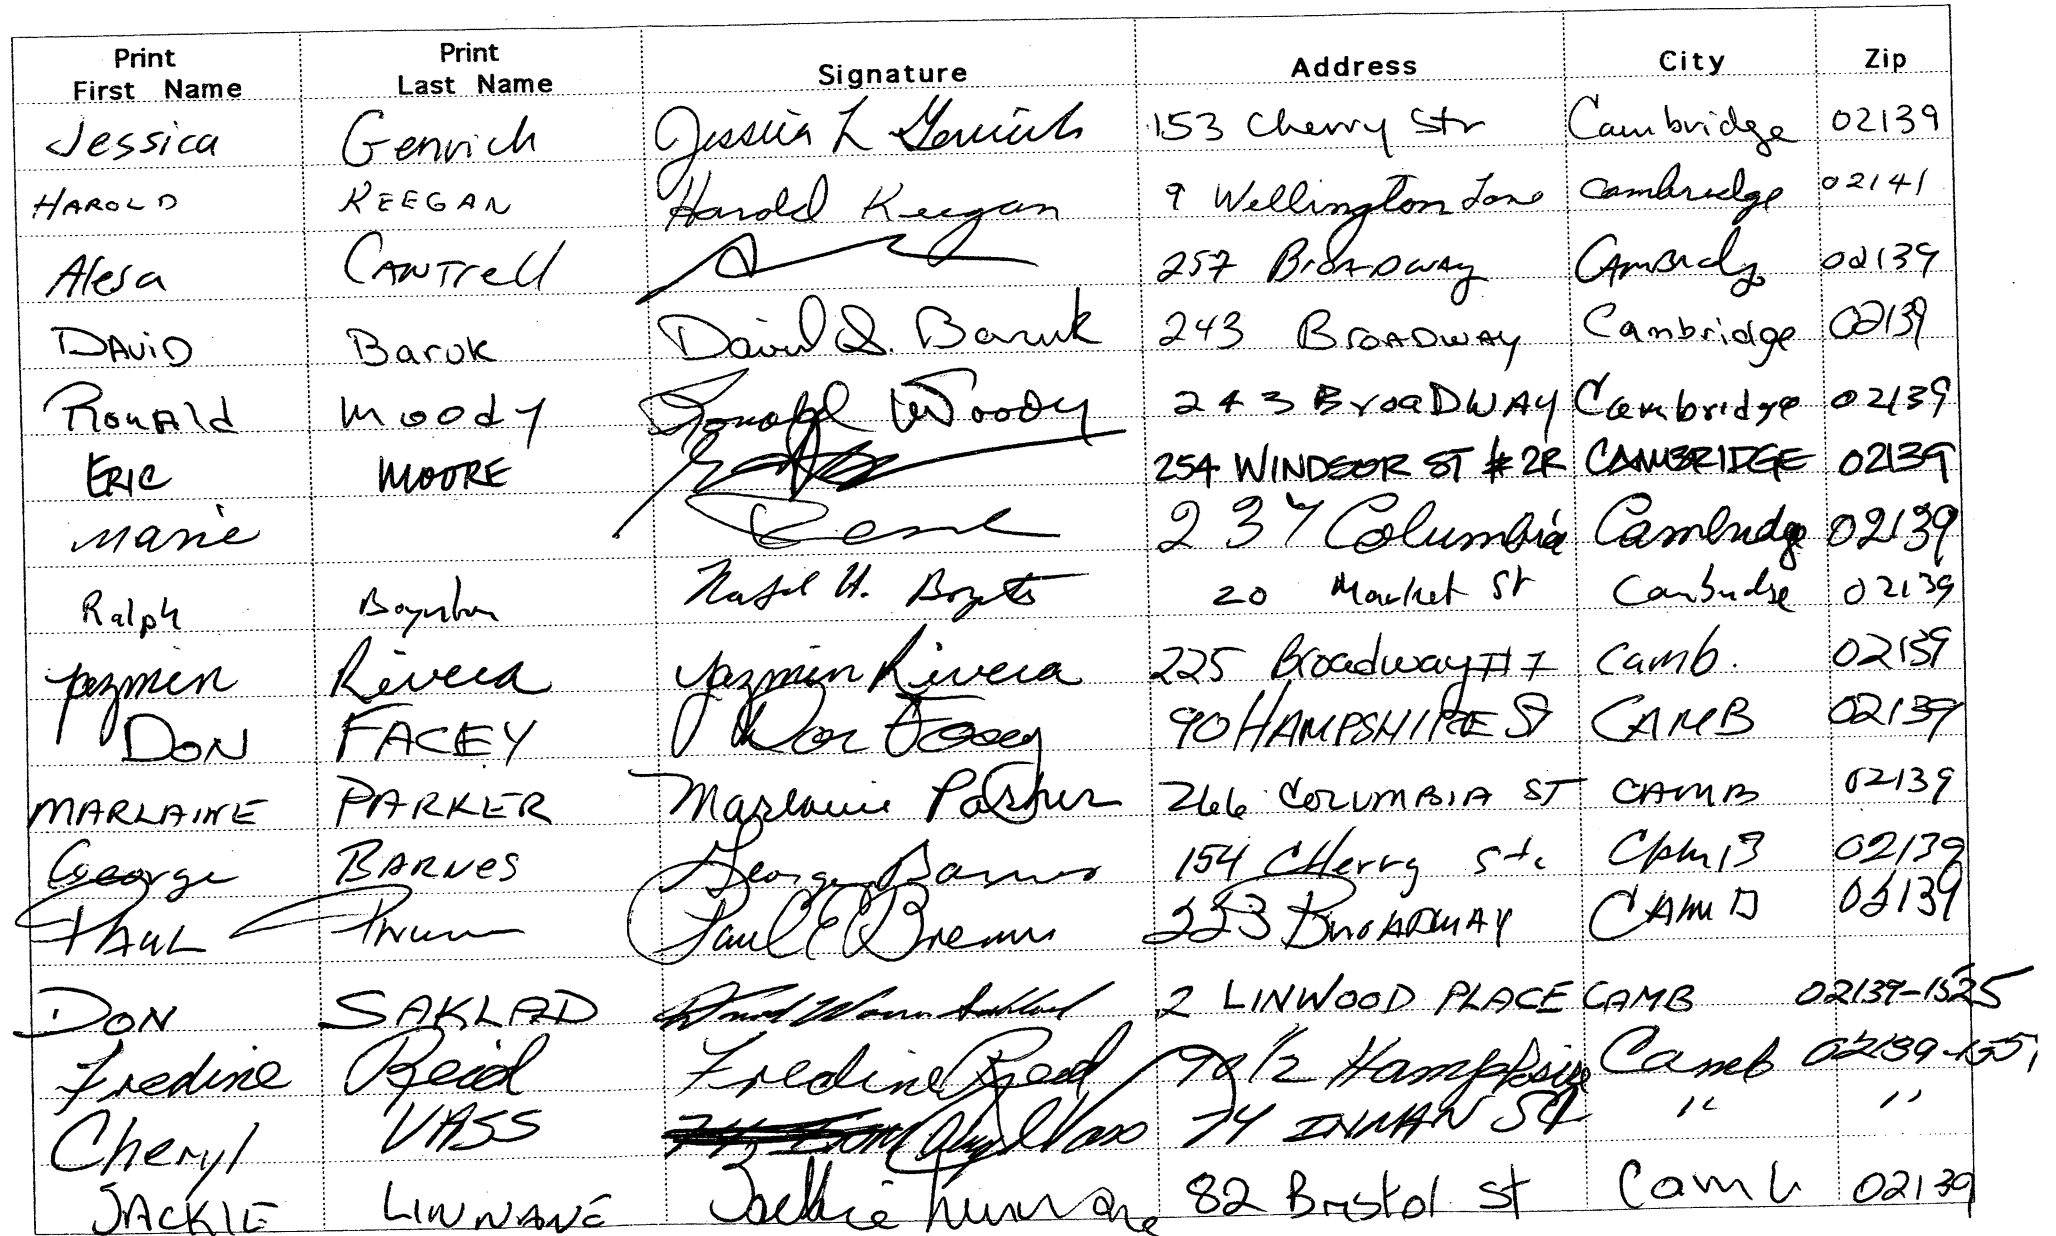 Print Print
First Name Last Name Signature Address City Zip
Jessica Genrich Jessica L Genrich 153 Cherry Str Cambridge 02139
HAROLD KEEGAN Harold Keegan 9 Wellington Lane Cambridge 02141
Alesa CANTrell 257 BROADWAY CAMBridg 02139
DAViD Baruk David S. Baruk 243 BROADWAY Cambridge 02139
RonAld Moody Ronald Woody 243 BroaDWAY Cambridge 02139
ERIC MOORE 254 WINDSOR ST #2R CAMBRIDGE 02139
Marie 237 Columbia Cambridge 02139
Ralph Boynton Ralph H. Boynton 20 Market St Cambridge 02139
Yazmin Rivera Yazmin Rivera 225 Broadway #7 Camb. 02139
DON FACEY Don Facey 90 HAMPSHIRE ST CAMB 02139
MARLAINE PARKER Marlaine Parker 266 COLUMBIA ST CAMB 02139
George BARNES George Barnes 154 CHerry Str CAMB 02139
PAUL Paul E 223 BROADWAY CAMB 02139
DON SAKLAD 2 LINWOOD PLACE CAMB 02139-1525
Fredine Reid Fredine Reid 90 1/2 Hampshire Camb 02139-155
Cheryl VASS Cheryl Vass 74 INMAN ST " "
JACKIE LINNANE Jackie Linnane 82 Bristol St Camb 02139